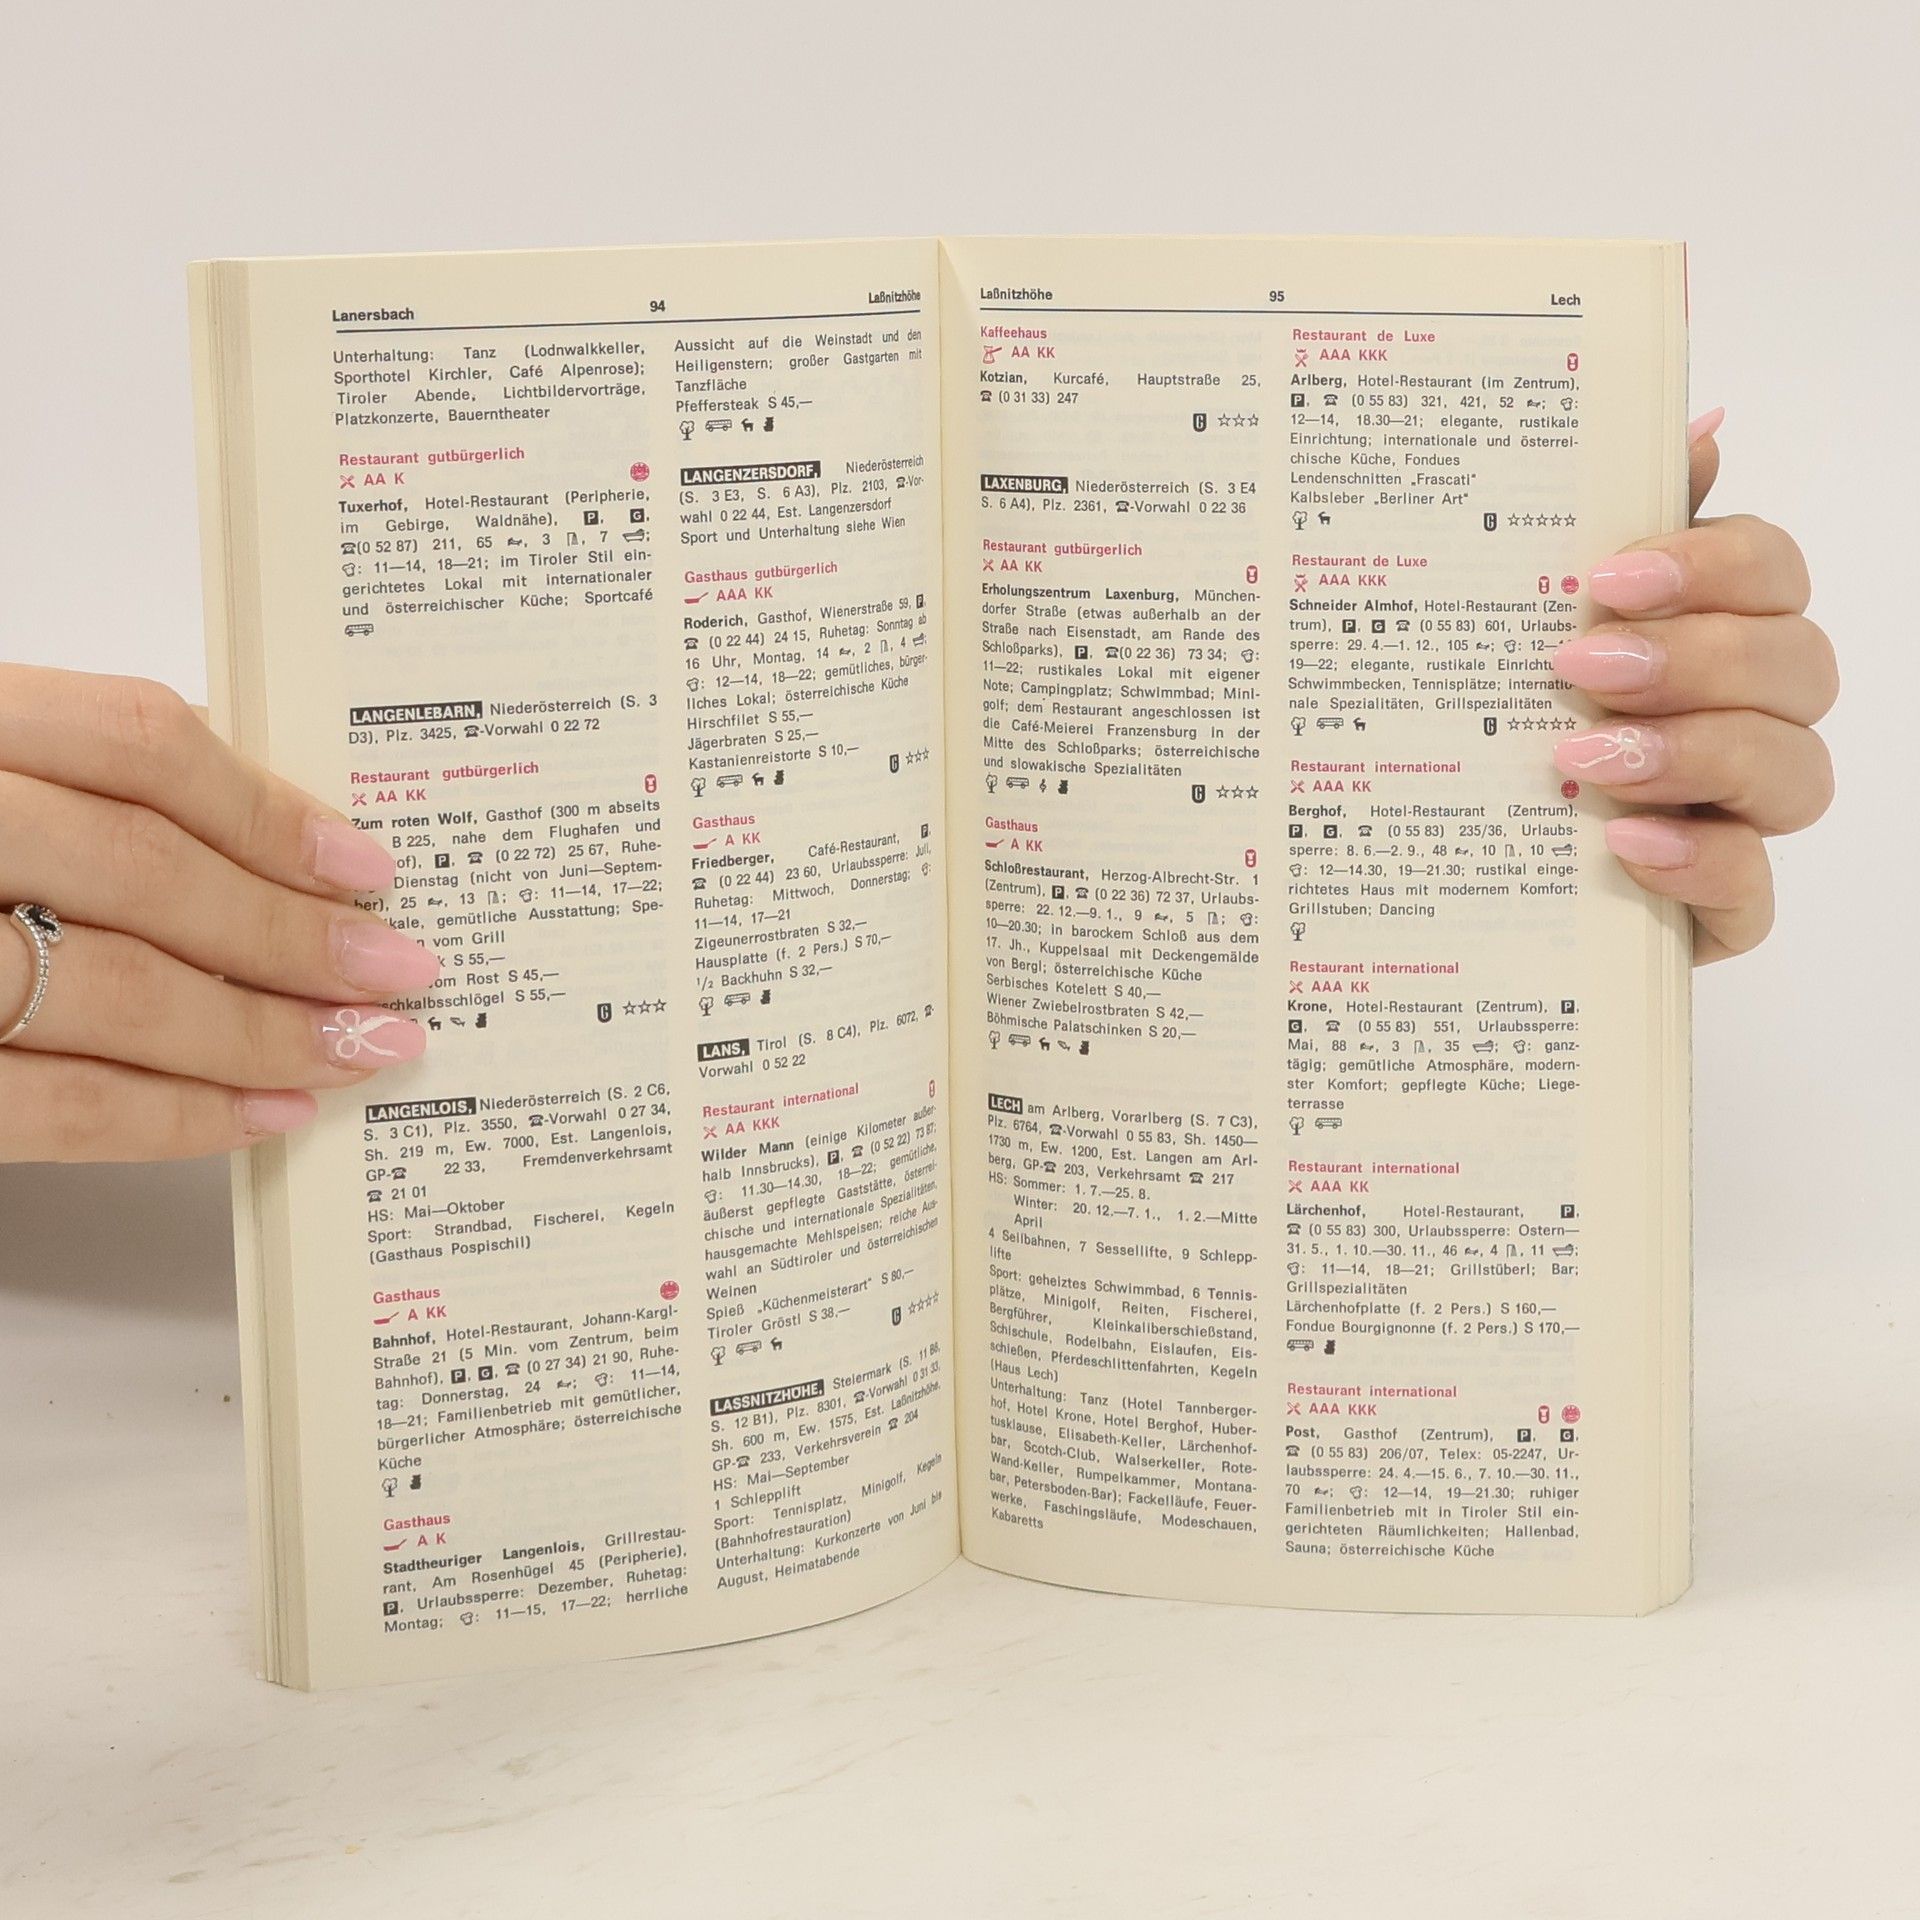 Lanersbach 94 Laßnitzhöhe
Unterhaltung: Tanz (Lodnwalkkeller,
Sporthotel Kirchler, Café Alpenrose);
Tiroler Abende, Lichtbildervorträge,
Platzkonzerte, Bauerntheater
Restaurant gutbürgerlich
AA K
Tuxerhof, Hotel-Restaurant (Peripherie,
im Gebirge, Waldnähe), P, G,
☎(0 52 87) 211, 65 , 3 , 7 ;
: 11—14, 18—21; im Tiroler Stil ein-
gerichtetes Lokal mit internationaler
und österreichischer Küche; Sportcafé
LANGENLEBARN, Niederösterreich (S. 3
D3), Plz. 3425, ☎-Vorwahl 0 22 72
Restaurant gutbürgerlich
AA KK
Zum roten Wolf, Gasthof (300 m abseits
B 225, nahe dem Flughafen und
of), P, ☎ (0 22 72) 25 67, Ruhe-
Dienstag (nicht von Juni—Septem-
ber), 25 , 13 ; : 11—14, 17—22;
kale, gemütliche Ausstattung; Spe-
vom Grill
S 55,—
om Rost S 45,—
schkalbsschlögel S 55,—
G ☆☆☆
LANGENLOIS, Niederösterreich (S. 2 C6,
S. 3 C1), Plz. 3550, ☎-Vorwahl 0 27 34,
Sh. 219 m, Ew. 7000, Est. Langenlois,
GP-☎ 22 33, Fremdenverkehrsamt
☎ 21 01
HS: Mai—Oktober
Sport: Strandbad, Fischerei, Kegeln
(Gasthaus Pospischil)
Gasthaus
A KK
Bahnhof, Hotel-Restaurant, Johann-Kargl-
Straße 21 (5 Min. vom Zentrum, beim
Bahnhof), P, G, ☎ (0 27 34) 21 90, Ruhe-
tag: Donnerstag, 24 ; : 11—14,
18—21; Familienbetrieb mit gemütlicher,
bürgerlicher Atmosphäre; österreichische
Küche
Gasthaus
A K
Stadtheuriger Langenlois, Grillrestau-
rant, Am Rosenhügel 45 (Peripherie),
P, Urlaubssperre: Dezember, Ruhetag:
Montag; : 11—15, 17—22; herrliche
Aussicht auf die Weinstadt und den
Heiligenstern; großer Gastgarten mit
Tanzfläche
Pfeffersteak S 45,—
LANGENZERSDORF, Niederösterreich
(S. 3 E3, S. 6 A3), Plz. 2103, ☎-Vor-
wahl 0 22 44, Est. Langenzersdorf
Sport und Unterhaltung siehe Wien
Gasthaus gutbürgerlich
AAA KK
Roderich, Gasthof, Wienerstraße 59, P,
☎ (0 22 44) 24 15, Ruhetag: Sonntag ab
16 Uhr, Montag, 14 , 2 , 4 ;
: 12—14, 18—22; gemütliches, bürger-
liches Lokal; österreichische Küche
Hirschfilet S 55,—
Jägerbraten S 25,—
Kastanienreistorte S 10,—
G ☆☆☆
Gasthaus
A KK
Friedberger, Café-Restaurant, P,
☎ (0 22 44) 23 60, Urlaubssperre: Juli,
Ruhetag: Mittwoch, Donnerstag; :
11—14, 17—21
Zigeunerrostbraten S 32,—
Hausplatte (f. 2 Pers.) S 70,—
1/2 Backhuhn S 32,—
LANS, Tirol (S. 8 C4), Plz. 6072, ☎-
Vorwahl 0 52 22
Restaurant international
AA KKK
Wilder Mann (einige Kilometer außer-
halb Innsbrucks), P, ☎ (0 52 22) 73 87;
: 11.30—14.30, 18—22; gemütliche,
äußerst gepflegte Gaststätte, österrei-
chische und internationale Spezialitäten,
hausgemachte Mehlspeisen; reiche Aus-
wahl an Südtiroler und österreichischen
Weinen
Spieß „Küchenmeisterart" S 80,—
Tiroler Gröstl S 38,—
G ☆☆☆☆
LASSNITZHÖHE, Steiermark (S. 11 B6,
S. 12 B1), Plz. 8301, ☎-Vorwahl 0 31 33,
Sh. 600 m, Ew. 1575, Est. Laßnitzhöhe,
GP-☎ 233, Verkehrsverein ☎ 204
HS: Mai—September
1 Schlepplift
Sport: Tennisplatz, Minigolf, Kegeln
(Bahnhofrestauration)
Unterhaltung: Kurkonzerte von Juni bis
August, Heimatabende
Laßnitzhöhe 95 Lech
Kaffeehaus
AA KK
Kotzian, Kurcafé, Hauptstraße 25,
☎ (0 31 33) 247
G ☆☆☆
LAXENBURG, Niederösterreich (S. 3 E4
S. 6 A4), Plz. 2361, ☎-Vorwahl 0 22 36
Restaurant gutbürgerlich
AA KK
Erholungszentrum Laxenburg, München-
dorfer Straße (etwas außerhalb an der
Straße nach Eisenstadt, am Rande des
Schloßparks), P, ☎(0 22 36) 73 34; :
11—22; rustikales Lokal mit eigener
Note; Campingplatz; Schwimmbad; Mini-
golf; dem Restaurant angeschlossen ist
die Café-Meierei Franzensburg in der
Mitte des Schloßparks; österreichische
und slowakische Spezialitäten
G ☆☆☆
Gasthaus
A KK
Schloßrestaurant, Herzog-Albrecht-Str. 1
(Zentrum), P, ☎ (0 22 36) 72 37, Urlaubs-
sperre: 22. 12.—9. 1., 9 , 5 ; :
10—20.30; in barockem Schloß aus dem
17. Jh., Kuppelsaal mit Deckengemälde
von Bergl; österreichische Küche
Serbisches Kotelett S 40,—
Wiener Zwiebelrostbraten S 42,—
Böhmische Palatschinken S 20,—
LECH am Arlberg, Vorarlberg (S. 7 C3),
Plz. 6764, ☎-Vorwahl 0 55 83, Sh. 1450—
1730 m, Ew. 1200, Est. Langen am Arl-
berg, GP-☎ 203, Verkehrsamt ☎ 217
HS: Sommer: 1. 7.—25. 8.
Winter: 20. 12.—7. 1., 1. 2.—Mitte
April
4 Seilbahnen, 7 Sessellifte, 9 Schlepp-
lifte
Sport: geheiztes Schwimmbad, 6 Tennis-
plätze, Minigolf, Reiten, Fischerei,
Bergführer, Kleinkaliberschießstand,
Schischule, Rodelbahn, Eislaufen, Eis-
schießen, Pferdeschlittenfahrten, Kegeln
(Haus Lech)
Unterhaltung: Tanz (Hotel Tannberger-
hof, Hotel Krone, Hotel Berghof, Huber-
tusklause, Elisabeth-Keller, Lärchenhof-
bar, Scotch-Club, Walserkeller, Rote-
Wand-Keller, Rumpelkammer, Montana-
bar, Petersboden-Bar); Fackelläufe, Feuer-
werke, Faschingsläufe, Modeschauen,
Kabaretts
Restaurant de Luxe
AAA KKK
Arlberg, Hotel-Restaurant (im Zentrum),
P, ☎ (0 55 83) 321, 421, 52 ; :
12—14, 18.30—21; elegante, rustikale
Einrichtung; internationale und österrei-
chische Küche, Fondues
Lendenschnitten „Frascati"
Kalbsleber „Berliner Art"
G ☆☆☆☆☆
Restaurant de Luxe
AAA KKK
Schneider Almhof, Hotel-Restaurant (Zen-
trum), P, G ☎ (0 55 83) 601, Urlaubs-
sperre: 29. 4.—1. 12., 105 ; : 12—
19—22; elegante, rustikale Einrichtu
Schwimmbecken, Tennisplätze; internatio-
nale Spezialitäten, Grillspezialitäten
G ☆☆☆☆☆
Restaurant international
AAA KK
Berghof, Hotel-Restaurant (Zentrum),
P, G, ☎ (0 55 83) 235/36, Urlaubs-
sperre: 8. 6.—2. 9., 48 , 10 , 10 ;
: 12—14.30, 19—21.30; rustikal einge-
richtetes Haus mit modernem Komfort;
Grillstuben; Dancing
Restaurant international
AAA KK
Krone, Hotel-Restaurant (Zentrum), P,
G, ☎ (0 55 83) 551, Urlaubssperre:
Mai, 88 , 3 , 35 ; : ganz-
tägig; gemütliche Atmosphäre, modern-
ster Komfort; gepflegte Küche; Liege-
terrasse
Restaurant international
AAA KK
Lärchenhof, Hotel-Restaurant, P,
☎ (0 55 83) 300, Urlaubssperre: Ostern—
31. 5., 1. 10.—30. 11., 46 , 4 , 11 ;
: 11—14, 18—21; Grillstüberl; Bar;
Grillspezialitäten
Lärchenhofplatte (f. 2 Pers.) S 160,—
Fondue Bourgignonne (f. 2 Pers.) S 170,—
Restaurant international
AAA KKK
Post, Gasthof (Zentrum), P, G,
☎ (0 55 83) 206/07, Telex: 05-2247, Ur-
laubssperre: 24. 4.—15. 6., 7. 10.—30. 11.,
70 ; : 12—14, 19—21.30; ruhiger
Familienbetrieb mit in Tiroler Stil ein-
gerichteten Räumlichkeiten; Hallenbad,
Sauna; österreichische Küche